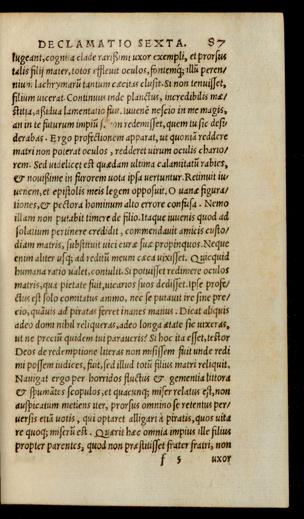 DECLAMATIO SEXTA. 87
lugeant, cognita clade rarissimi uxor exempli, et prorsus
talis filij mater, totos effleuit oculos, fontemq; illū peren/
nium lachrymarū tantum cæcitas clusit. Si non tenuisset,
filium uicerat. Continuus inde planctus, incredibilis mæ/
stitia, assidua lamentatio fuit. iuuenē nescio in me magis,
an in te futurum impiū non redemisset, quem tu sic desy
derabas. Ergo profectionem apparat, ut quoniā reddere
matri non poterat oculos, redderet uirum oculis chario/
rem. Sed uidelicet est quædam ultima calamitatū rabies,
& nouissime in furorem uota ipsa uertuntur. Retinuit iu/
uenem, et epistolis meis legem opposuit. O uanæ figura/
tiones, & pectora hominum alto errore confusa. Nemo
illam non putabit timere de filio. Itaque iuuenis quod ad
solatium pertinere credidit, commendauit amicis custo/
diam matris, substituit uici curæ suæ propinquos. Neque
enim aliter usq; ad reditū meum cæca uixisset. Quicquid
humana ratio ualet, contulit. Si potuisset redimere oculos
matris, qua pietate fuit, uicarios suos dedisset. Ipse profe/
ctus est solo comitatus animo, nec se putauit ire sine pre/
cio, quāuis ad piratas ferret inanes manus. Dicat aliquis
adeo domi nihil reliqueras, adeo longa ætate sic uixeras,
ut ne preciū quidem tui paraueris? Si hoc ita esset, testor
Deos de redemptione literas non misissem fuit unde redi
mi possem iudices, fuit, sed illud totū filius matri reliquit.
Nauigat ergo per horridos fluctus & gementia littora
& spumātes scopulos, et quacunq; miser relatus est, non
auspicatum metiens iter, prorsus omnino se retentus per/
uersis etiā uotis, qui optaret alligari à piratis, quos uita
re quoq; miserū est. Quærit hæc omnia impius ille filius
propter parentes, quod non præstitisset frater fratri, non
f 5 uxor